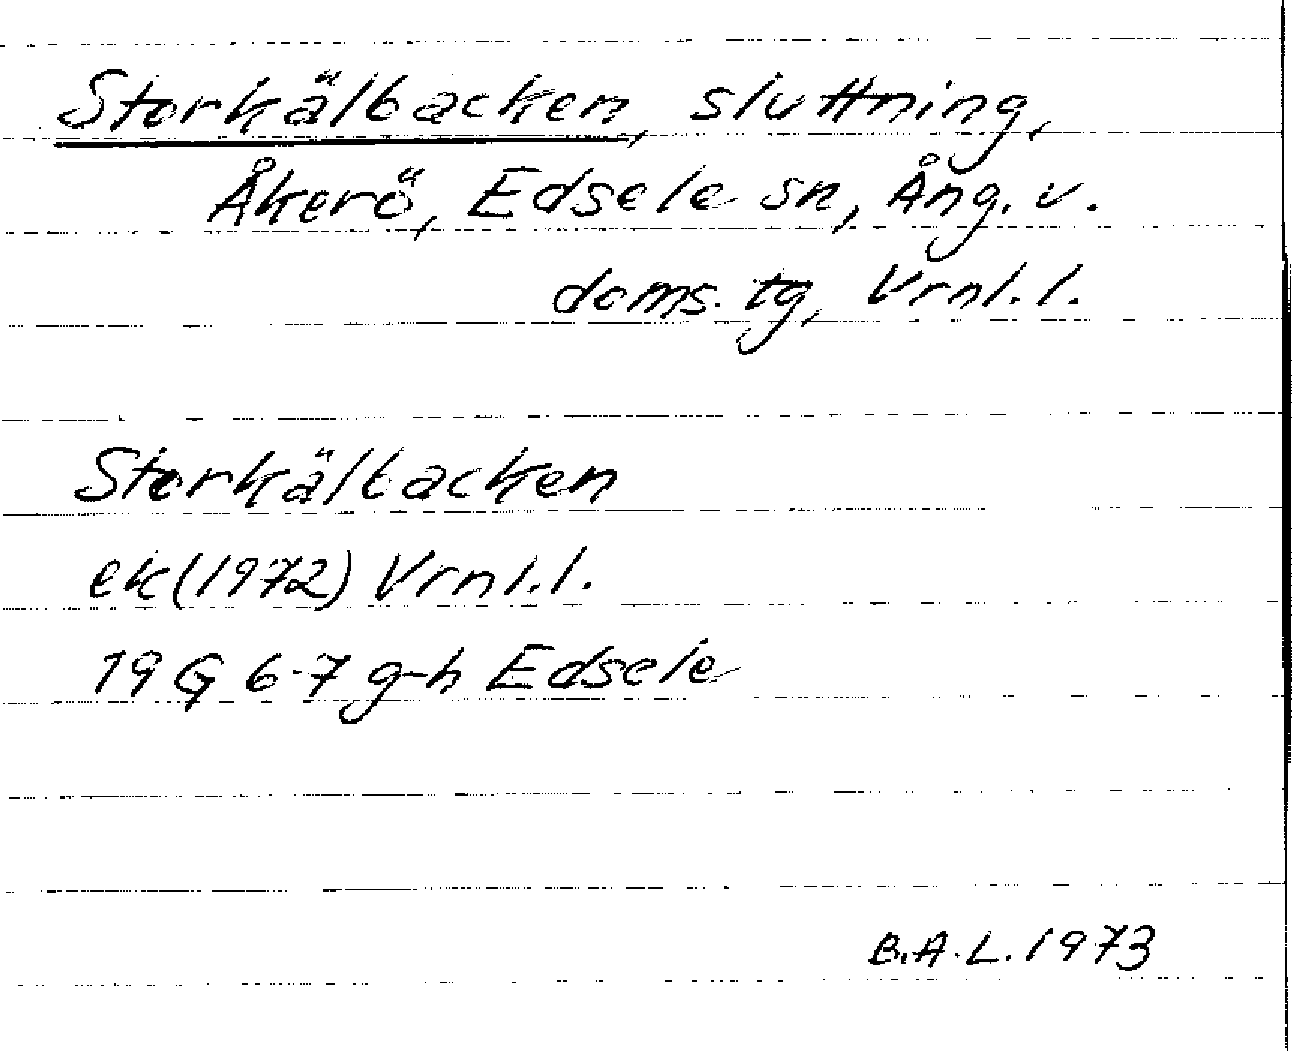 Storkälbacken, sluttning,
Åkerö, Edsele sn, Ång. v.
doms. tg, Vrnl. l.
Storkälbacken
ek (1972) Vrnl. l.
19 G 6-7 g-h Edsele
B.A.L. 1973